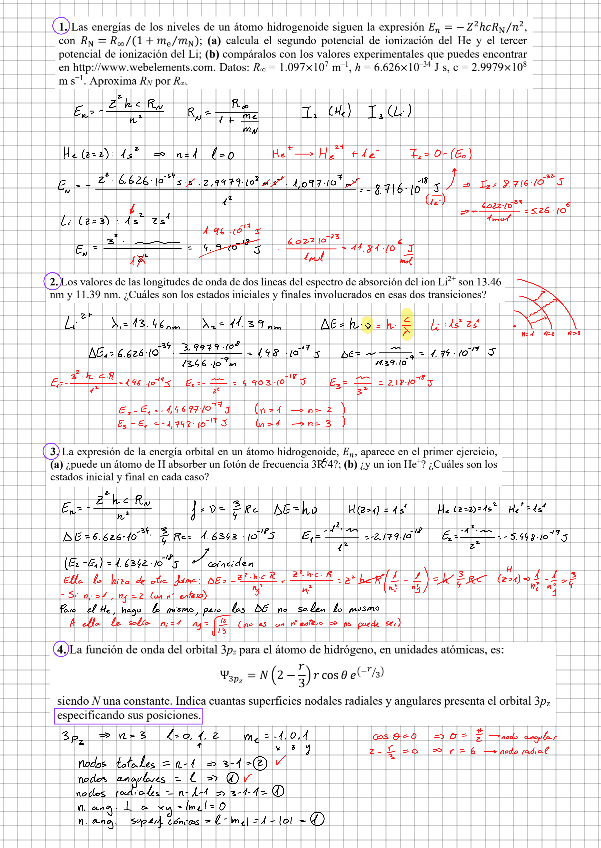 1. Las energías de los niveles de un átomo hidrogenoide siguen la expresión Eₙ = − Z²hcR_N/n²,
con R_N = R∞/(1 + mₑ/m_N); (a) calcula el segundo potencial de ionización del He y el tercer
potencial de ionización del Li; (b) compáralos con los valores experimentales que puedes encontrar
en http://www.webelements.com. Datos: R∞ = 1.097×10⁷ m⁻¹, h = 6.626×10⁻³⁴ J s, c = 2.9979×10⁸
m s⁻¹. Aproxima R_N por R∞.
Eₙ = - Z² h c R_N / n² R_N = R∞ / 1 + me/mN I₂ (He) I₃ (Li)
He (z=2) · 1s² ⇒ n=1 l=0 He⁺ → He²⁺ + 1e⁻ I₂ = 0 - (Eₙ)
E_N = - 2² · 6.626·10⁻³⁴ J s · 2,9979·10⁸ m s⁻¹ · 1,097·10⁷ m⁻¹ / 1² = - 8.716·10⁻¹⁸ J ⇒ I₂ = 8.716·10⁻¹⁸ J
Li (z=3) · 1s² 2s¹
1.96·10⁻¹⁷ J
6.022·10²³ / 1mol = 11.81·10⁶ J/mol
2. Los valores de las longitudes de onda de dos lineas del espectro de absorción del ion Li²⁺ son 13.46
nm y 11.39 nm. ¿Cuáles son los estados iniciales y finales involucrados en esas dos transiciones?
Li²⁺ λ₁ = 13.46 nm λ₂ = 11.39 nm ΔE = h·υ = h· c/λ Li: 1s² 2s¹
n=1 n=2 n=3
ΔE₁ = 6.626·10⁻³⁴ · 3.9979·10⁸ / 13.46·10⁻⁹ = 1,48·10⁻¹⁷ J ΔE = 11.39·10⁻⁹ = 1.74·10⁻¹⁷ J
E₁ = - 3² h c R / 1² = -1.96·10⁻¹⁷ J E₂ = 2² = 4.903·10⁻¹⁸ J E₃ = 3² = 2.18·10⁻¹⁸ J
E₂ - E₁ = -1,4697·10⁻¹⁷ J (n=1 → n=2)
E₃ - E₁ = -1,742·10⁻¹⁷ J (n=1 → n=3)
3. La expresión de la energía orbital en un átomo hidrogenoide, Eₙ, aparece en el primer ejercicio,
(a) ¿puede un átomo de H absorber un fotón de frecuencia 3Rc/4?; (b) ¿y un ion He⁺? ¿Cuáles son los
estados inicial y final en cada caso?
Eₙ = - Z² h c R_N / n² f = υ = 3/4 Rc ΔE = hυ H (z=1) = 1s¹ He (z=2) = 1s² He⁺ = 1s¹
ΔE = 6.626·10⁻³⁴ · 3/4 Rc = 1.6343·10⁻¹⁸ J E₁ = -1² / 1² = -2.179·10⁻¹⁸ E₂ = -1² / 2² = -5.448·10⁻¹⁹ J
(E₂-E₁) = 1.6342·10⁻¹⁸ J coinciden
Ella lo hizo de otra forma: ΔE = - Z² · h · c R / nf² + Z² · h · c · R / ni² = Z² h c R (1/ni² - 1/nf²) = h 3/4 Rc ⇒ (z=1) H 1/ni² - 1/nf² = 3/4
- Si ni = 1, nf = 2 (un nº entero)
Para el He, hago lo mismo, pero las ΔE no salen lo mismo
A ella le salía ni = 1 nf = √16/13 (no es un nº entero ⇒ no puede ser)
4. La función de onda del orbital 3p_z para el átomo de hidrógeno, en unidades atómicas, es:
Ψ₃pz = N (2 − r/3) r cos θ e^(−r/3)
siendo N una constante. Indica cuantas superficies nodales radiales y angulares presenta el orbital 3p_z
especificando sus posiciones.
3p_z ⇒ n=3 l=0,1,2 m_l = -1,0,1 cos θ = 0 ⇒ θ = π/2 → nodo angular
x z y 2 - r/3 = 0 ⇒ r = 6 → nodo radial
nodos totales = n-1 ⇒ 3-1 = 2 ✓
nodos angulares = l ⇒ 1 ✓
nodos radiales = n-l-1 ⇒ 3-1-1 = 1
n. ang. ⊥ a xy = |m_l| = 0
n. ang. superf. cónicas = l - |m_l| = 1 - |0| = 1